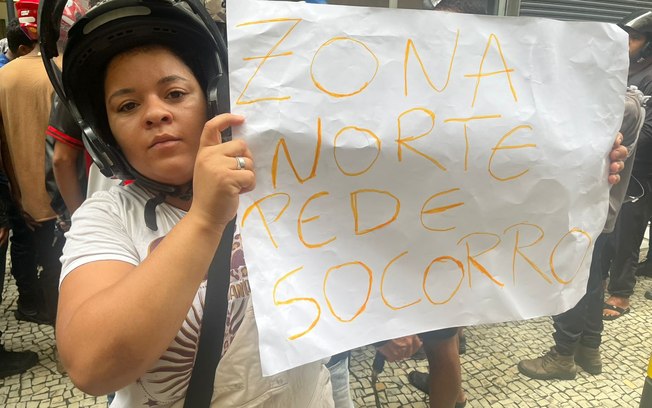 ZONA
NORTE
PEDE
SOCORRO